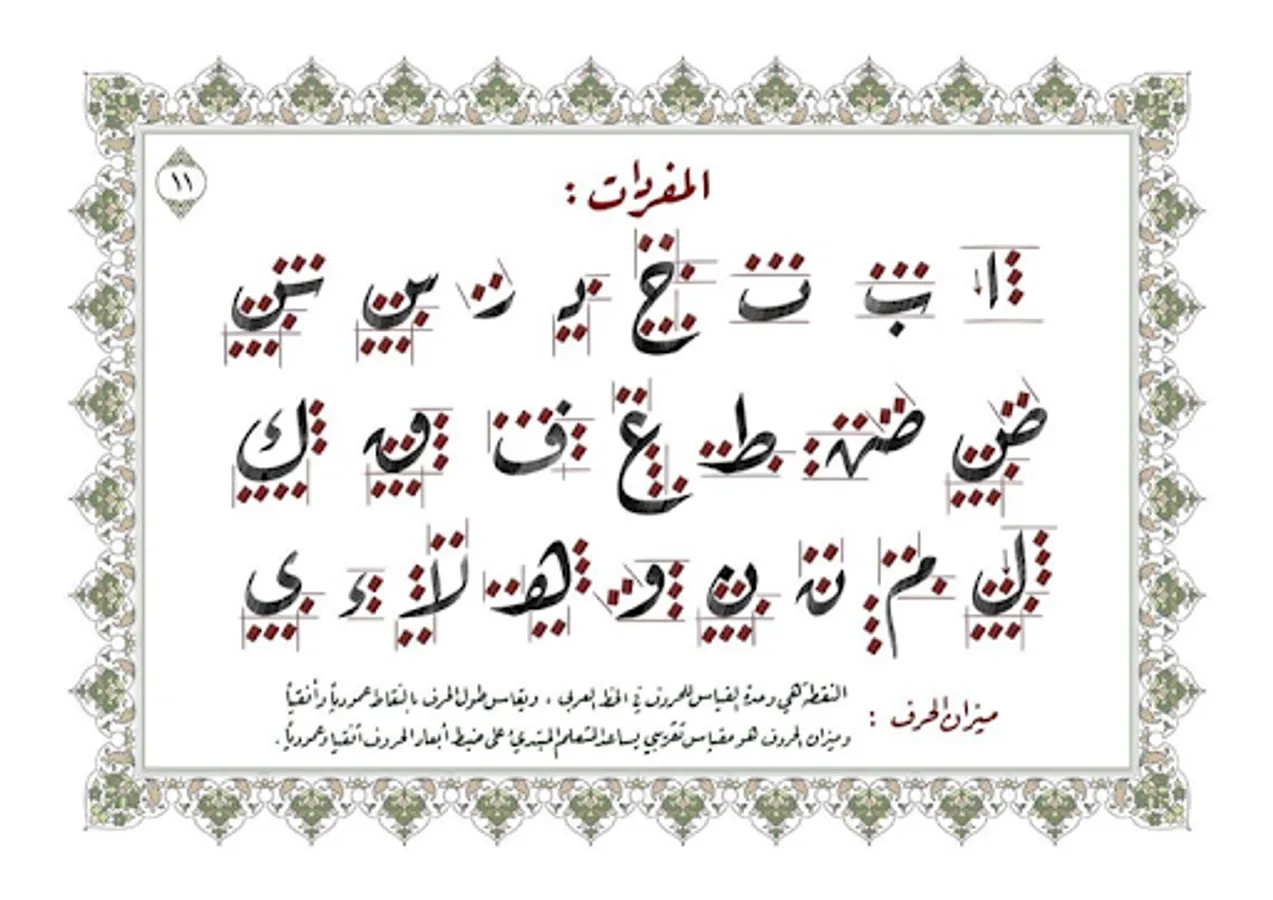 ١١
المفردات :
ا ب ت ح د ر س س
ص صه ط ع ف ق ك
ل م ن ن و هـ لا ء ي
ميزان الحرف : النقطة هي وحدة القياس للحروف في الخط العربي ، ويقاس طول الحرف بالنقاط عمودياً وأفقياً
وميزان الحروف هو مقياس تقريبي يساعد المتعلم المبتدئ على ضبط أبعاد الحروف أفقيا وعمودياً .